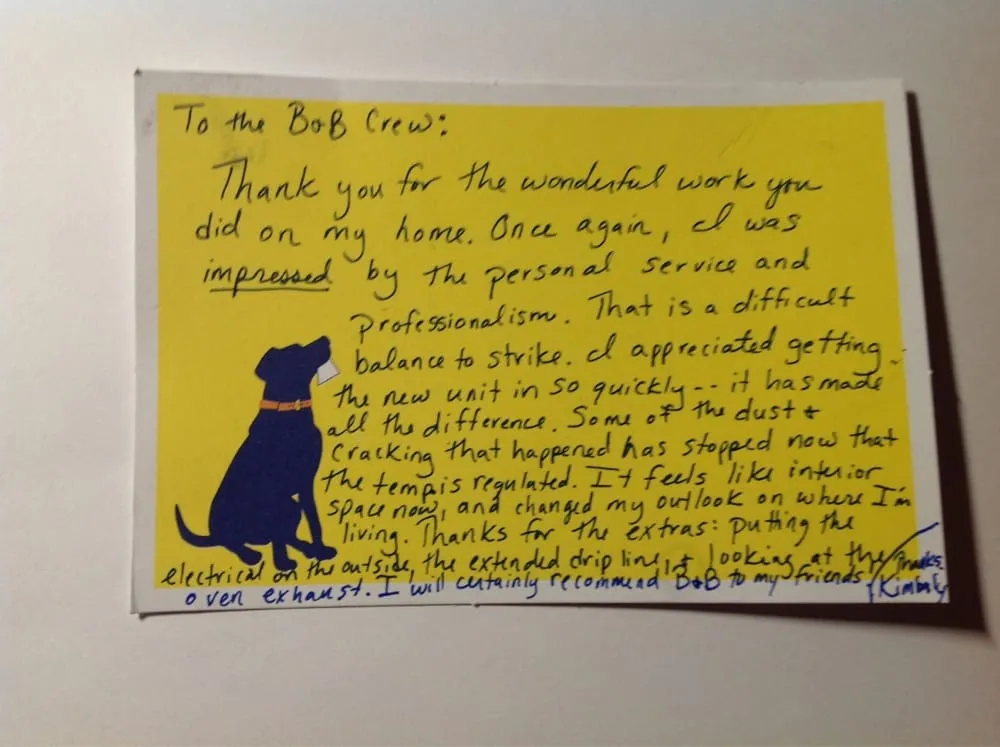 To the B&B Crew:
Thank you for the wonderful work you
did on my home. Once again, I was
impressed by the personal service and
professionalism. That is a difficult
balance to strike. I appreciated getting
the new unit in so quickly -- it has made
all the difference. Some of the dust &
cracking that happened has stopped now that
the temp is regulated. It feels like interior
space now, and changed my outlook on where I'm
living. Thanks for the extras: putting the
electrical on the outside, the extended drip line, & looking at the
oven exhaust. I will certainly recommend B&B to my friends.
Thanks,
Kimberly